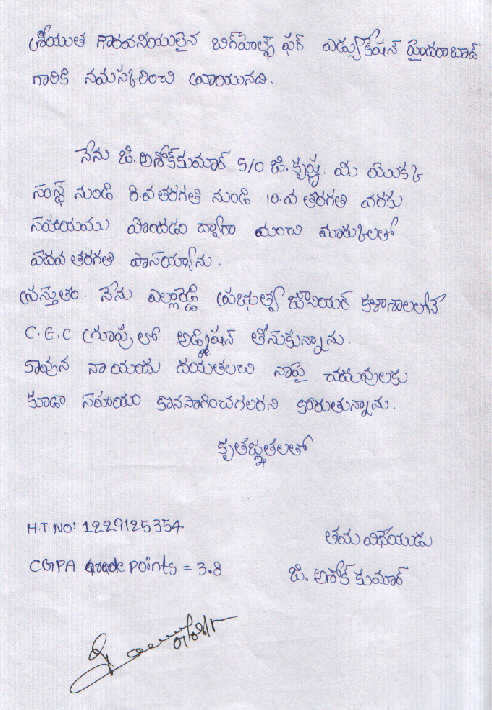 శ్రీయుత గౌరవనియులైన బిగ్‌హెల్ప్ ఫర్ ఎడ్యుకేషన్ హైదరాబాద్
గారికి నమస్కరించి వ్రాయునది.
నేను జి.అశోక్‌కుమార్ S/O జి.కృష్ణ. మీ యొక్క
సంస్థ నుండి 8.వ తరగతి నుండి 10.వ తరగతి వరకు
సహాయము పొందడం ద్వారా మంచి మార్కులతో
పదవ తరగతి పాసయ్యాను.
ప్రస్తుతం నేను ఎల్లారెడ్డి ప్రభుత్వ జూనియర్ కళాశాలలోనే
C.E.C గ్రూప్ లో అడ్మిషన్ తీసుకున్నాను.
కావున నా యందు దయతలచి నాపై చదువులకు
కూడా సహాయం కొనసాగించగలరని కోరుతున్నాను.
కృతజ్ఞతలతో
H.T NO: 1229125354
తమ విధేయుడు
CGPA Grade points = 3.8
జి. అశోక్ కుమార్